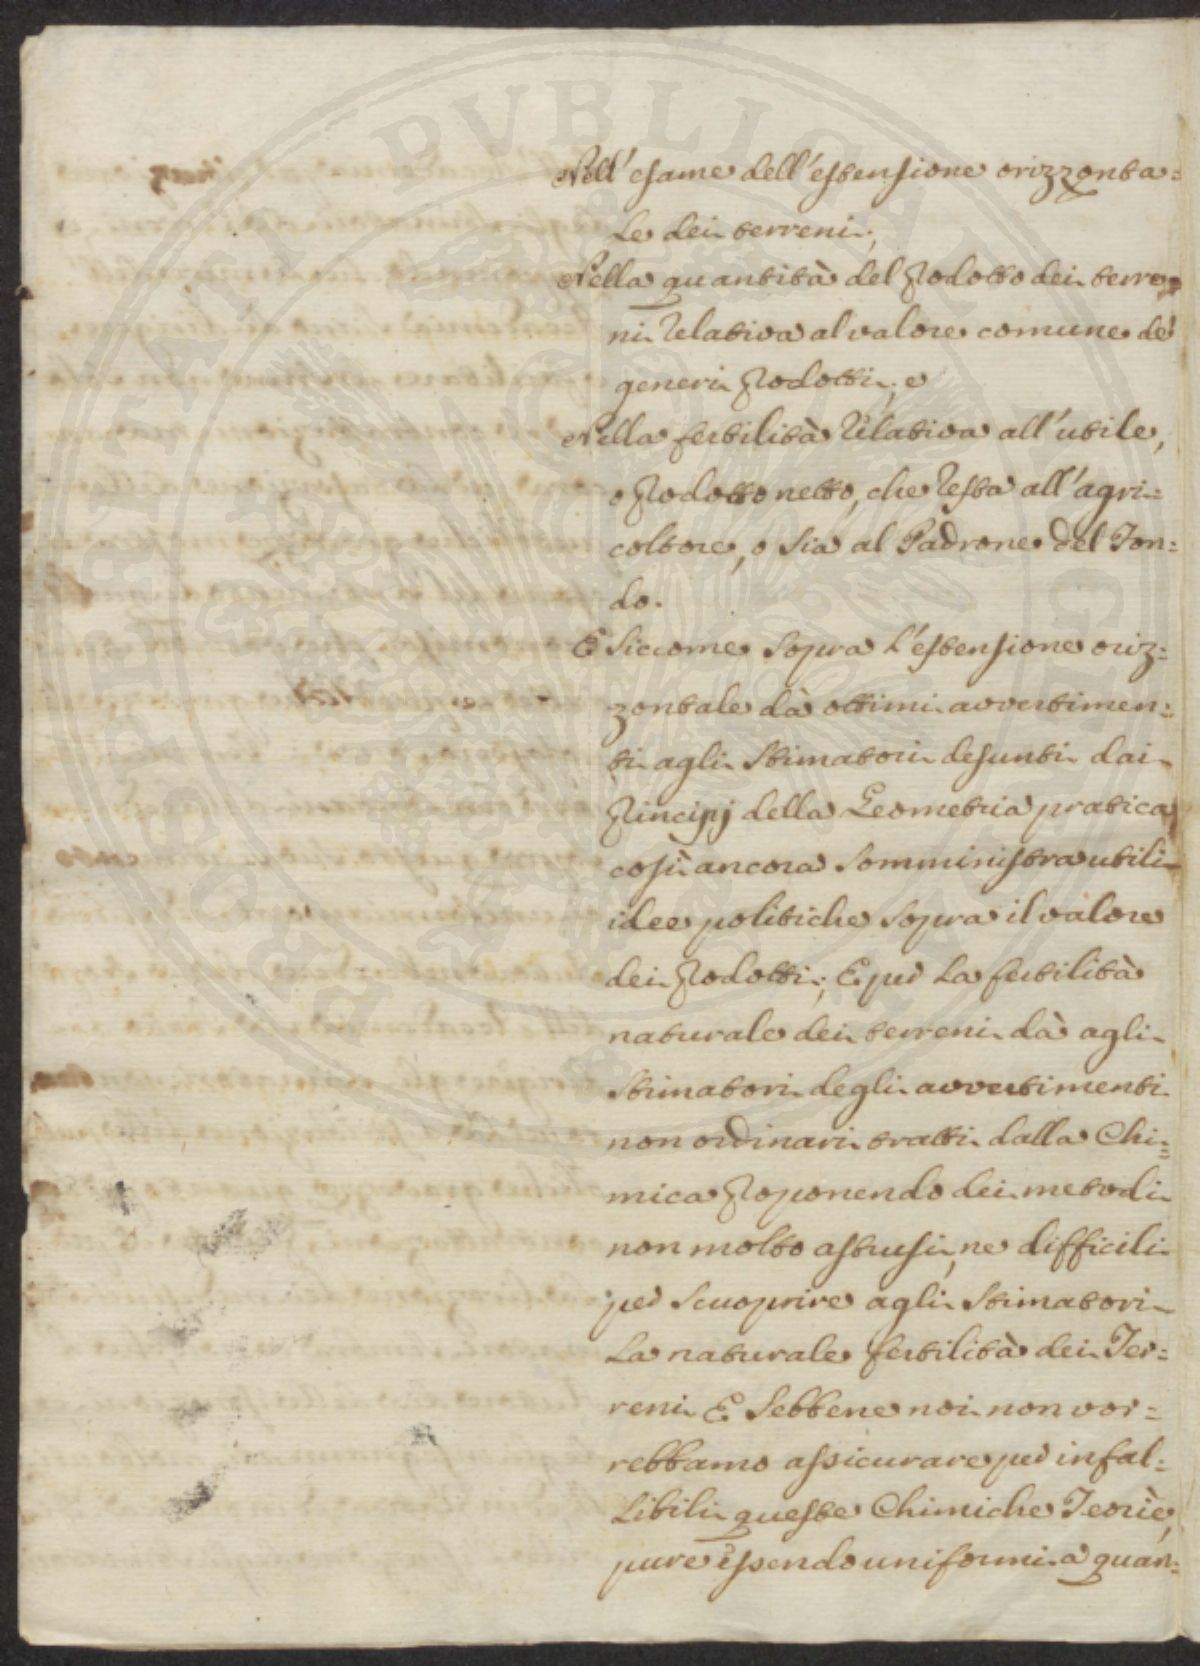 Nell'esame dell'estensione orizzonta=
le dei terreni;
Nella quantità del Prodotto dei terre
ni Relativa al valore comune de'
generi Prodotti; e
Nella fertilità Relativa all'utile,
o Prodotto netto, che Resta all'agri=
coltore, o sia al Padrone del Fon=
do.
E siccome sopra l'estensione oriz=
zontale dà ottimi avvertimen=
ti agli Stimatori desunti dai
Principj della Geometria pratica
così ancora somministra utili
idee politiche sopra il valore
dei Prodotti; E per la fertilità
naturale dei terreni dà agli
Stimatori degli avvertimenti
non ordinari tratti dalla Chi=
mica Proponendo dei metodi
non molto astrusi, ne difficili
per scuoprire agli Stimatori
la naturale fertilità dei Ter=
reni E sebbene noi non vor=
rebbamo assicurare per infal=
libili queste Chimiche Teorìe,
pure essendo uniformi a quan=
PROSPERITATI PVBLICAE AVGENDAE